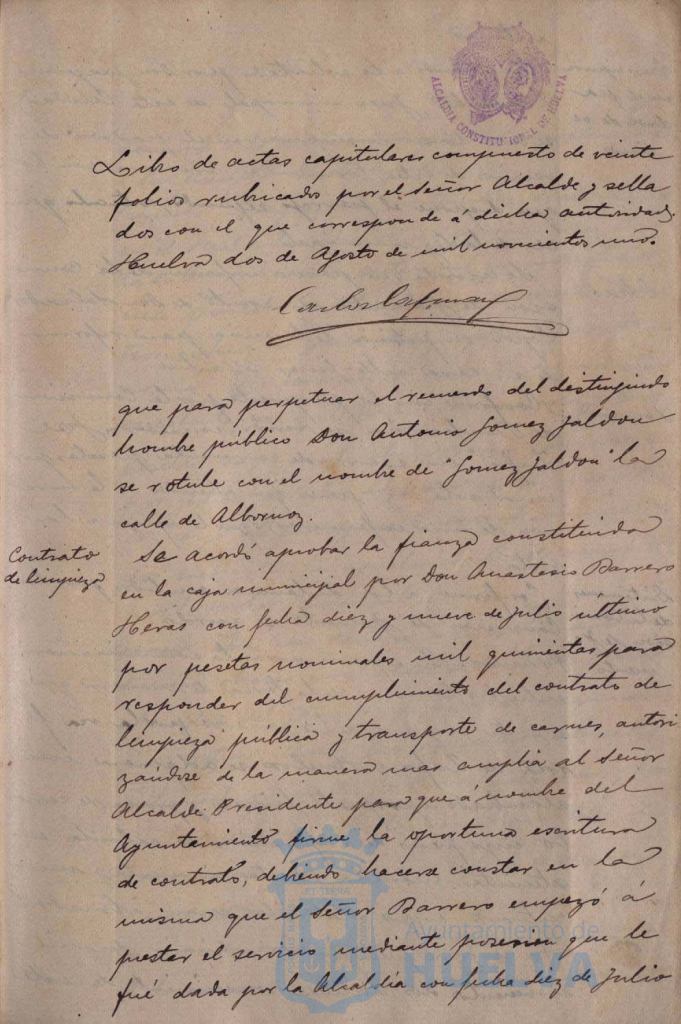 ALCALDIA CONSTITUCIONAL DE HUELVA
Libro de actas capitulares compuesto de veinte
folios rubricados por el Señor Alcalde y sella
dos con el que corresponde á dicha autoridad.
Huelva dos de Agosto de mil novecientos uno.
Carlos
que para perpetuar el recuerdo del distinguido
hombre público Don Antonio Gomez Jaldon
se rotule con el nombre de "Gomez Jaldon" la
calle de Albornoz.
Contrato
de limpieza
Se acordó aprobar la fianza constituida
en la caja municipal por Don Anastasio Barrero
Heras con fecha diez y nueve de julio último
por pesetas nominales mil quinientas para
responder del cumplimiento del contrato de
limpieza pública y transporte de carnes, autori
zándose de la manera mas amplia al Señor
Alcalde Presidente para que á nombre del
Ayuntamiento firme la oportuna escritura
de contrato, debiendo hacerse constar en la
misma que el Señor Barrero empezó á
prestar el servicio mediante posesion que le
fué dada por la Alcaldía con fecha diez de julio
Ayuntamiento de
HUELVA